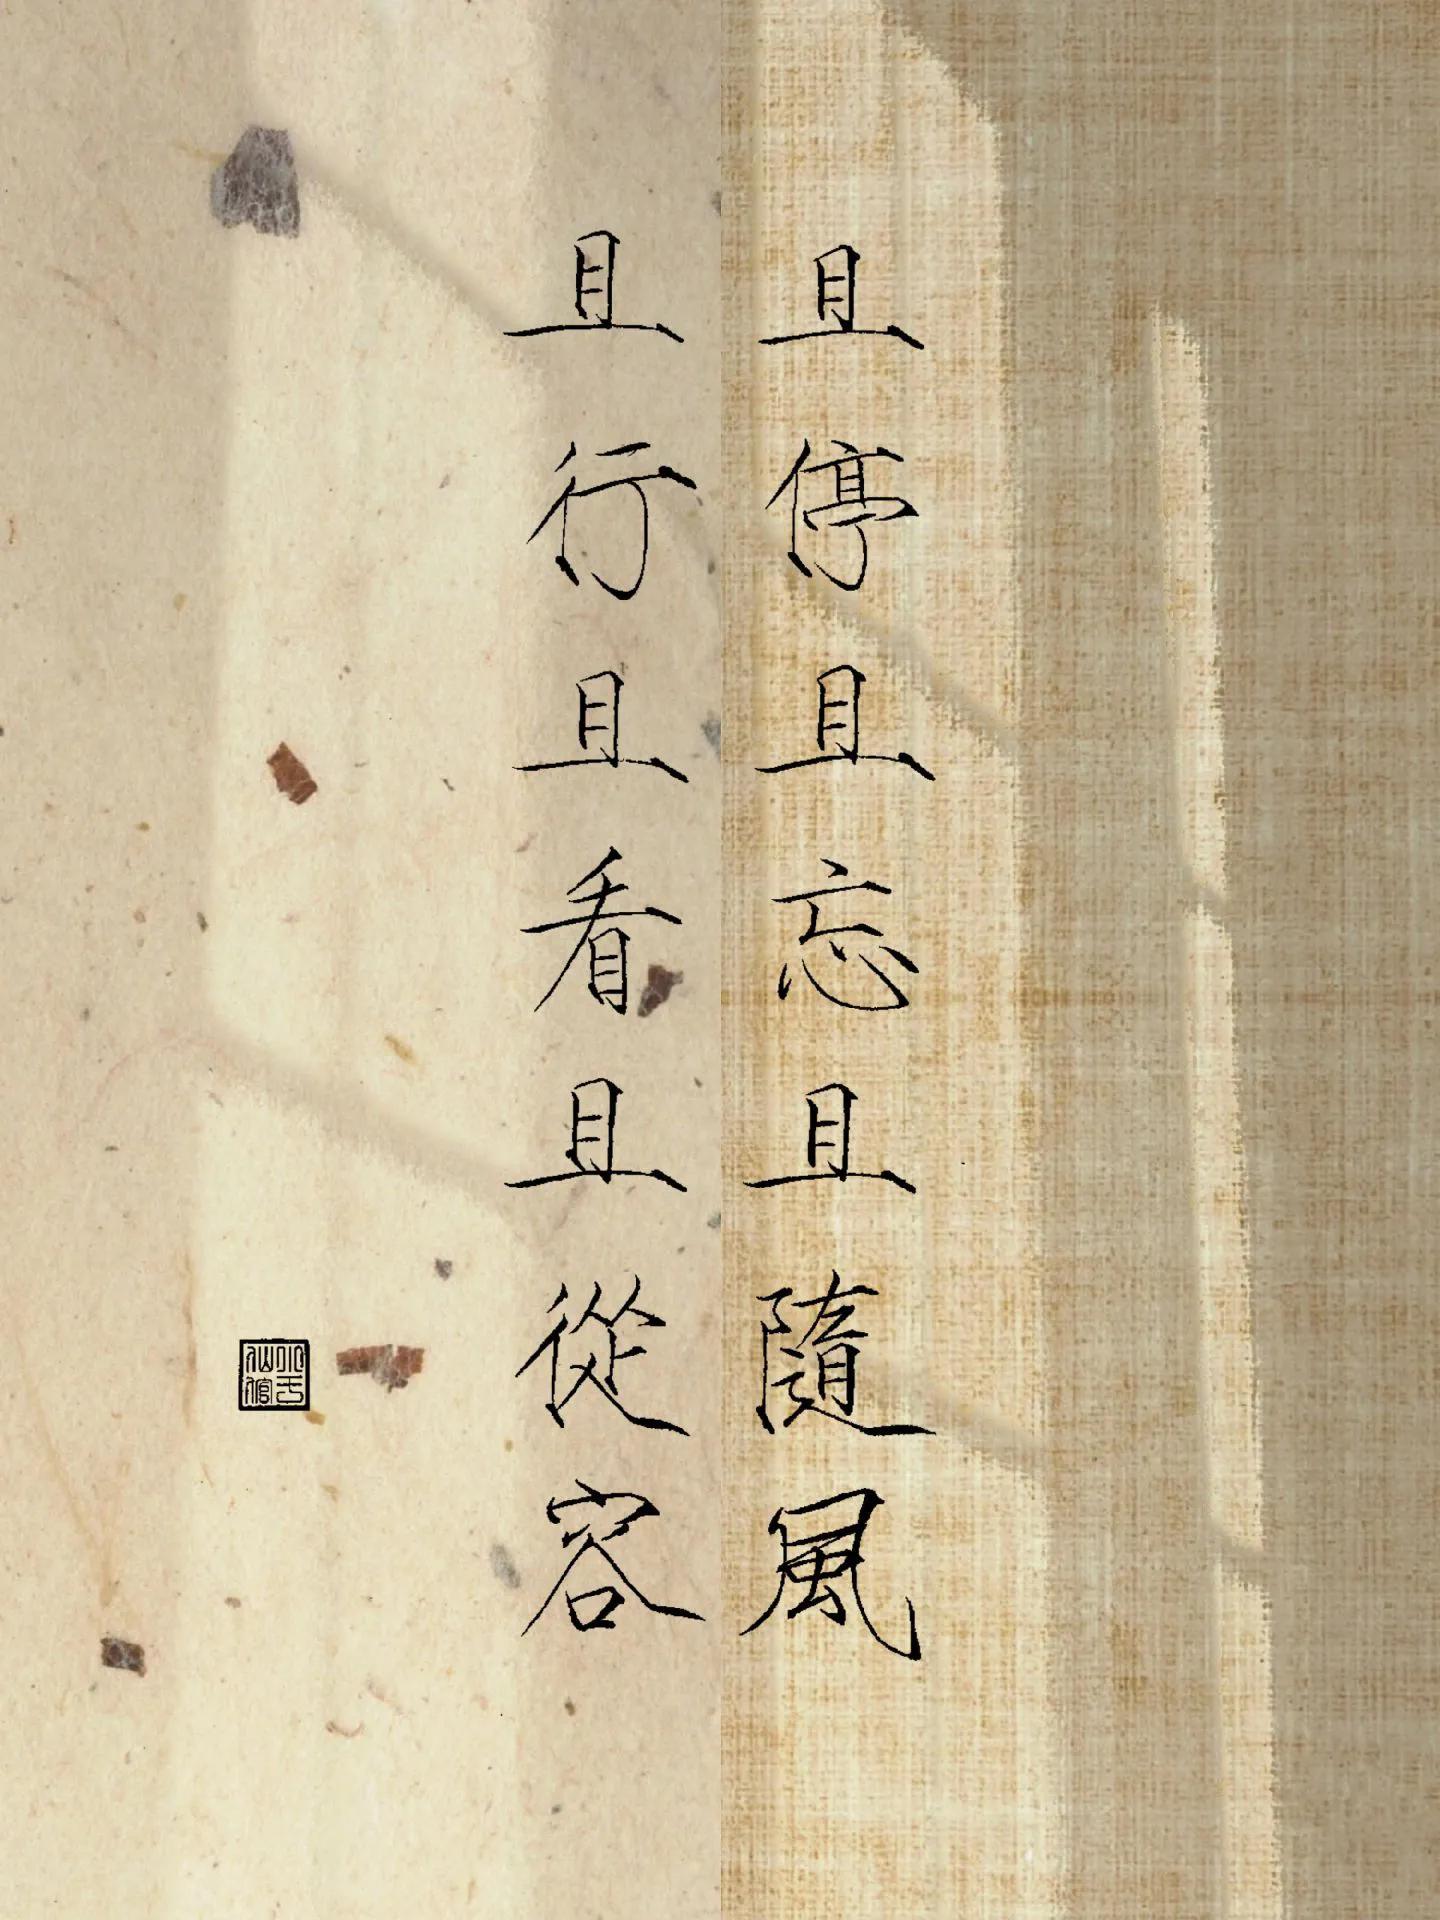 且停且忘且隨風
且行且看且從容